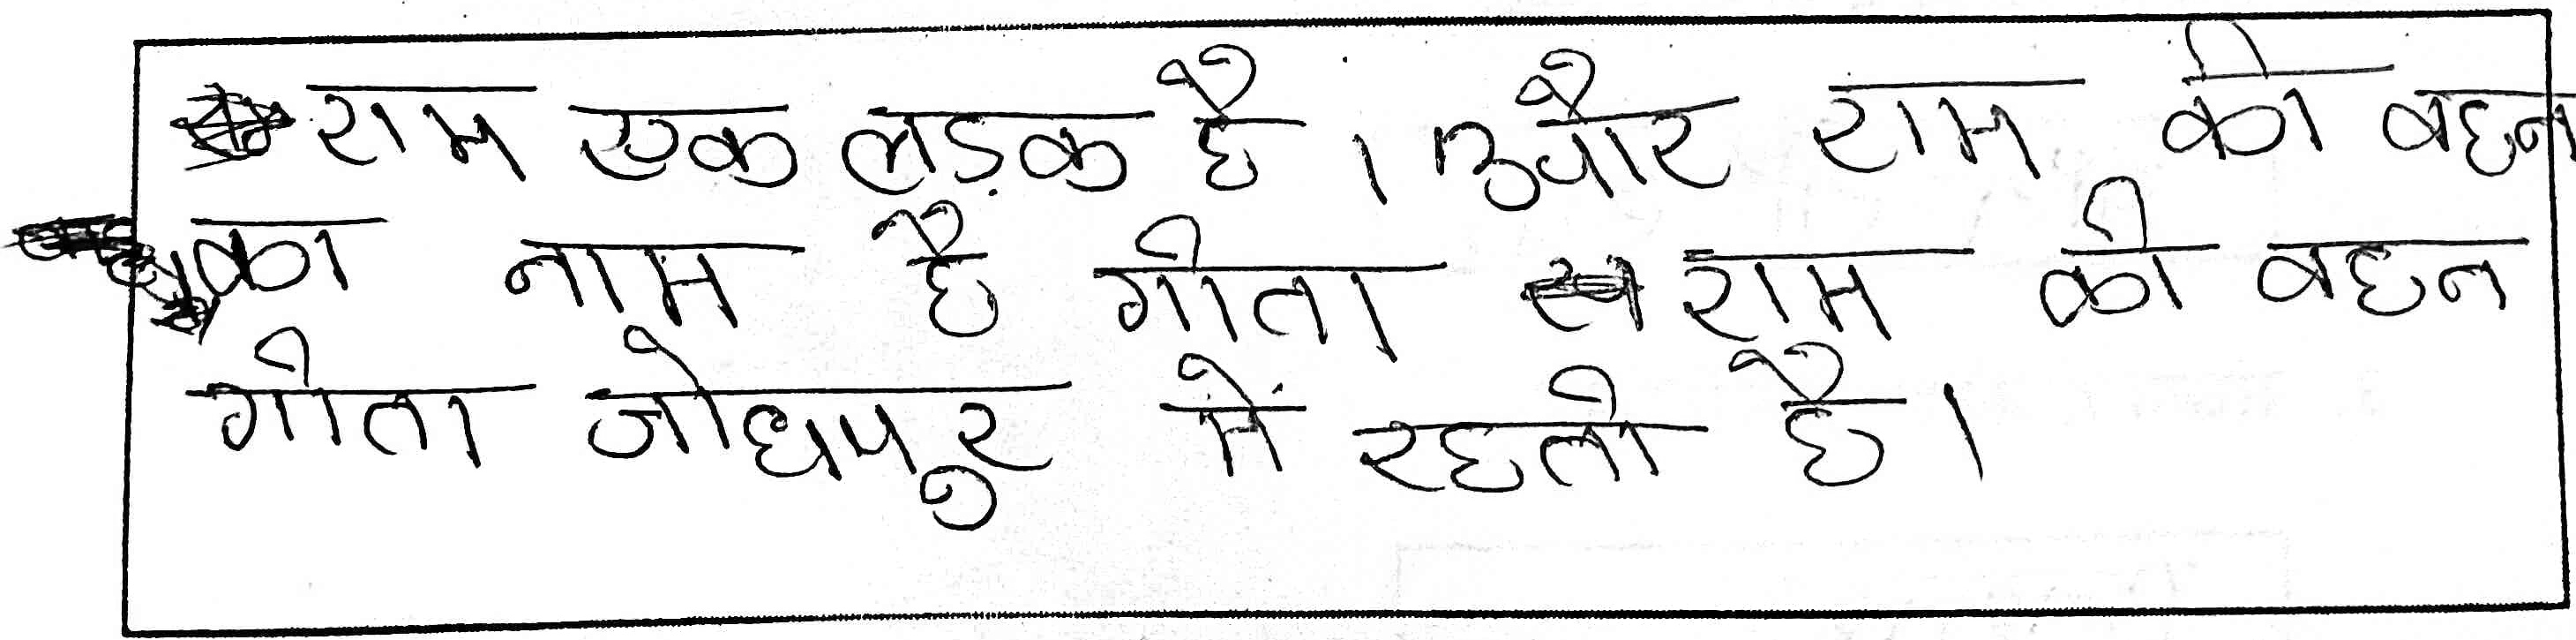 राम एक लड़क है । और राम की बहन
का नाम है गीता राम की बहन
गीता जोधपुर में रहती है ।